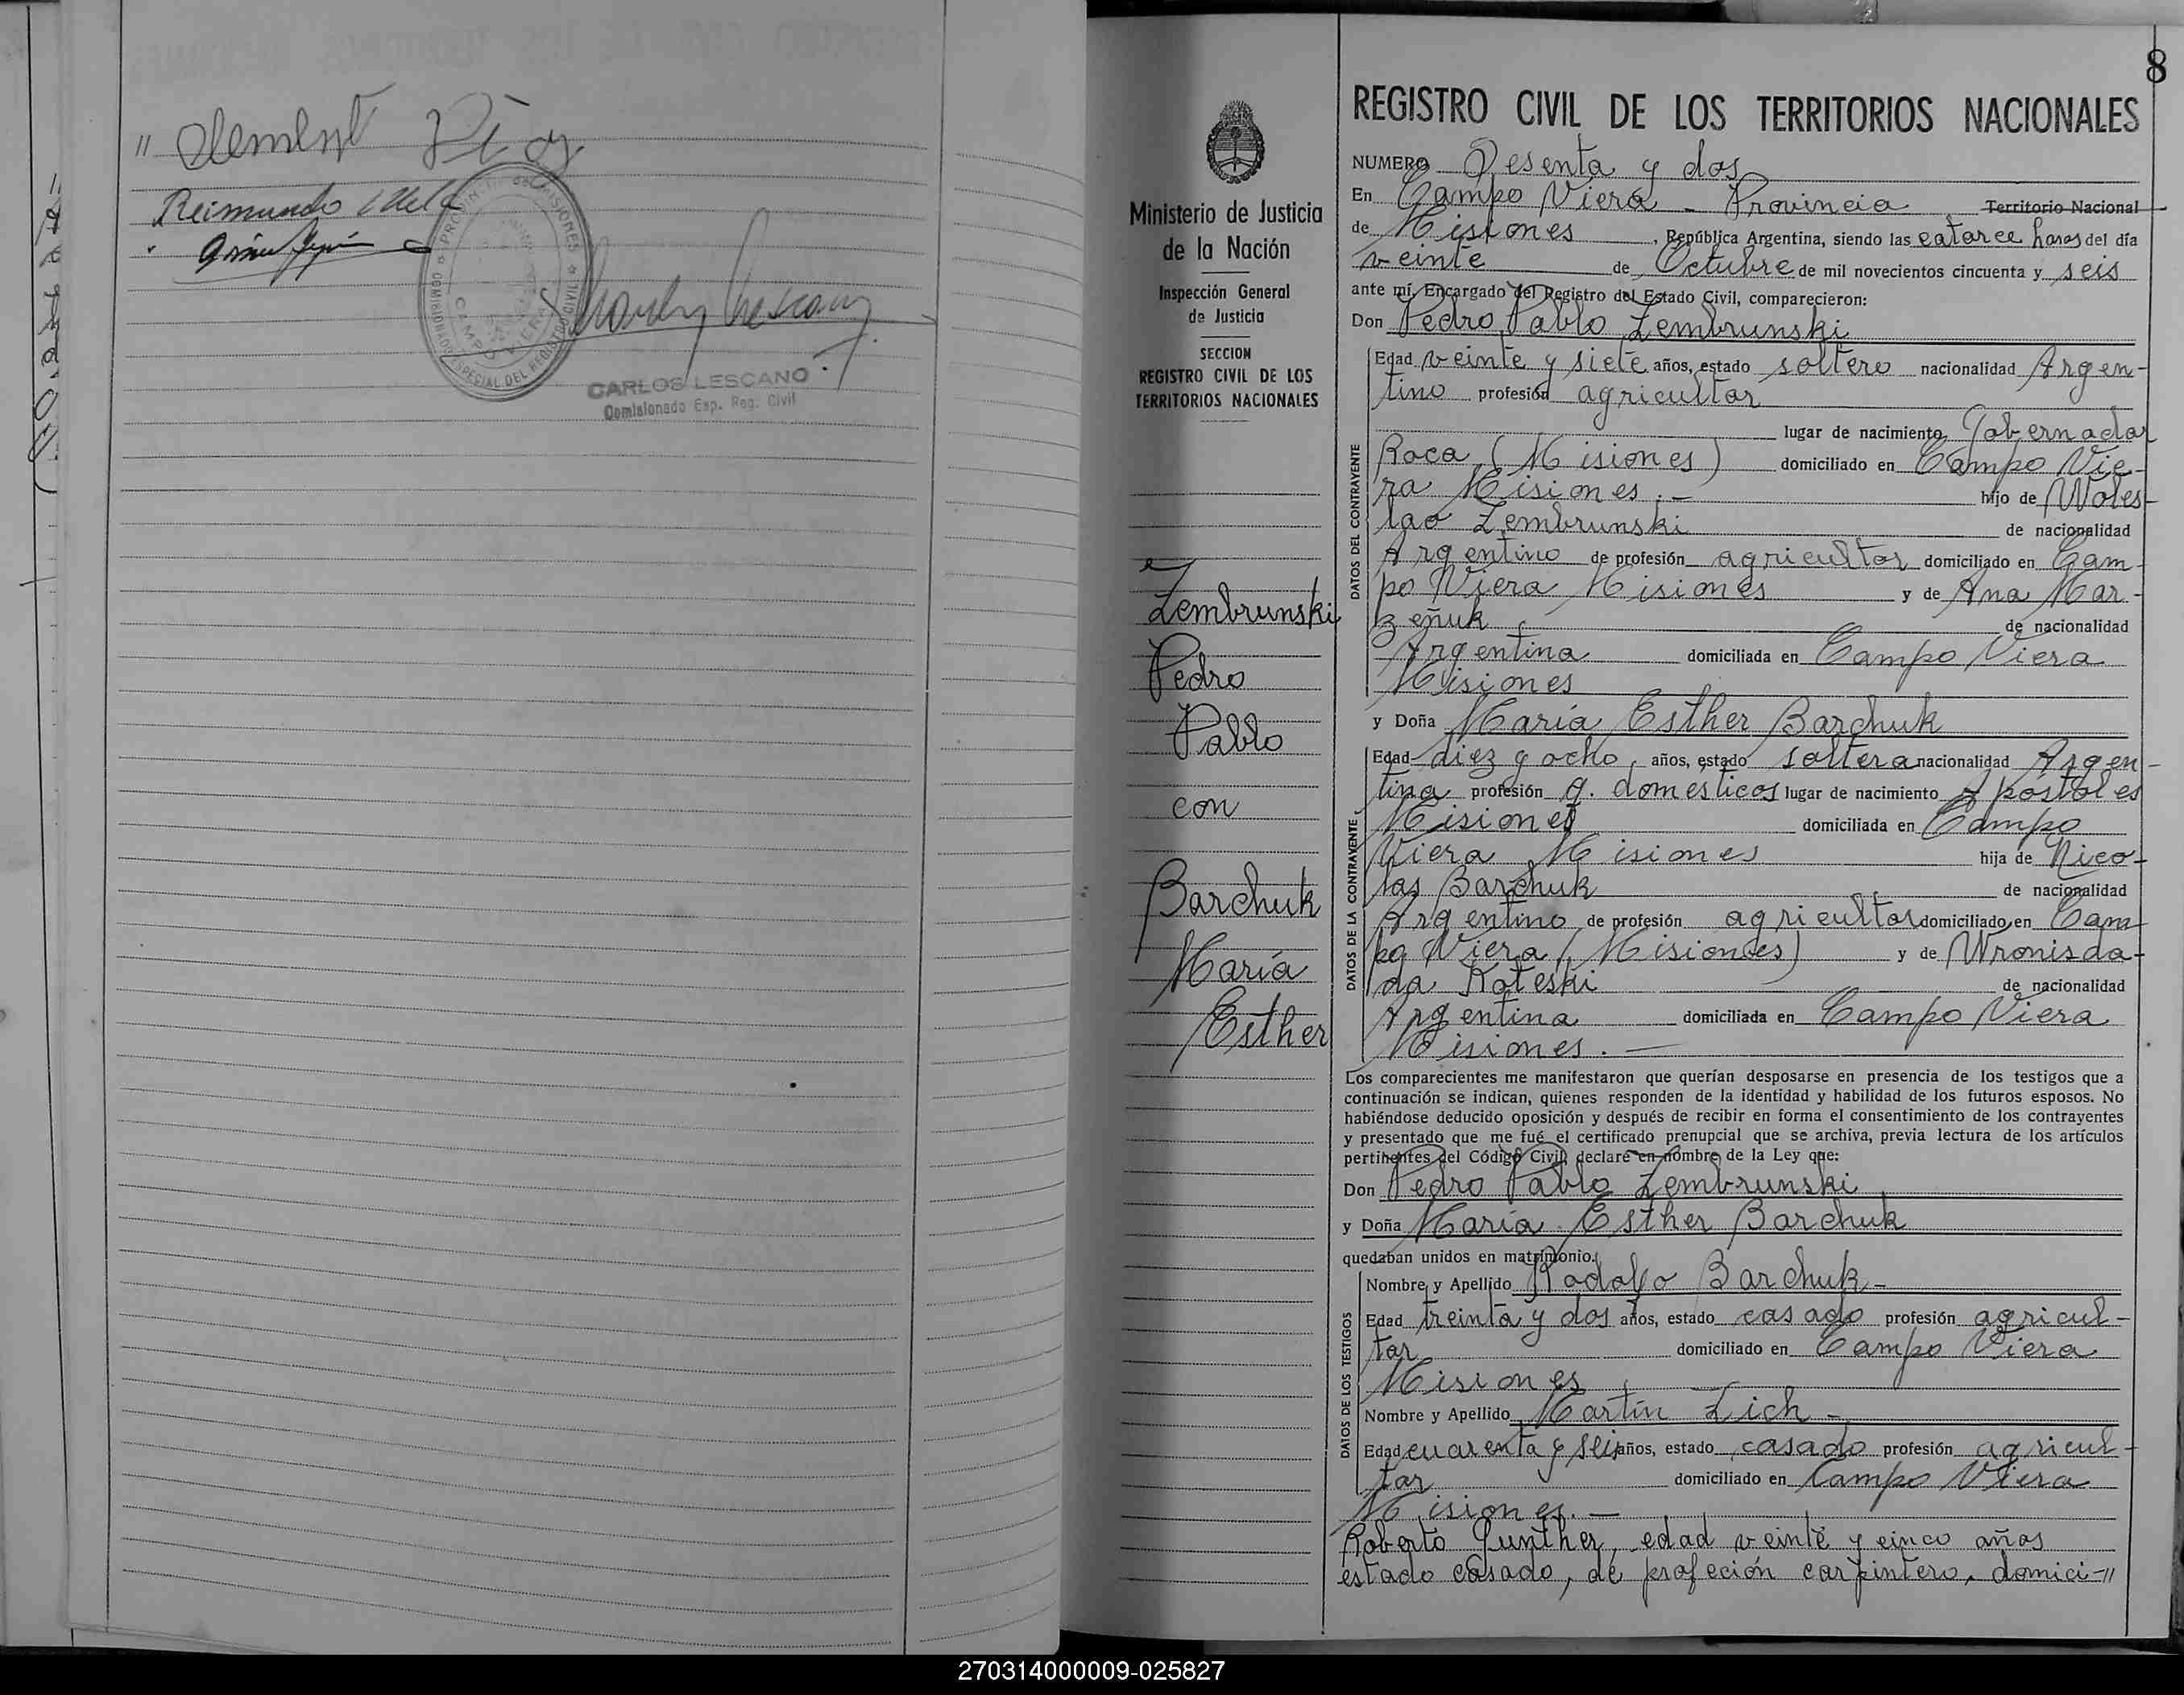 Reimundo
PROVINCIA DE MISIONES
COMISIONADO ESPECIAL DEL REGISTRO CIVIL
CAMPO VIERA
CARLOS LESCANO
Comisionado Esp. Reg. Civil
8
Ministerio de Justicia
de la Nación
Inspección General
de Justicia
SECCION
REGISTRO CIVIL DE LOS
TERRITORIOS NACIONALES
Zembrunski
Pedro
Pablo
con
Barchuk
María
Esther
REGISTRO CIVIL DE LOS TERRITORIOS NACIONALES
NUMERO Sesenta y dos
En Campo Viera - Provincia Territorio Nacional
de Misiones, República Argentina, siendo las catorce horas del día
veinte de Octubre de mil novecientos cincuenta y seis
ante mí, Encargado del Registro del Estado Civil, comparecieron:
Don Pedro Pablo Zembrunski
DATOS DEL CONTRAYENTE
Edad veinte y siete años, estado soltero nacionalidad Argen-
tino profesión agricultor
lugar de nacimiento Gobernador
Roca (Misiones) domiciliado en Campo Vie-
ra Misiones.- hijo de Woles-
lao Zembrunski de nacionalidad
Argentino de profesión agricultor domiciliado en Cam-
po Viera Misiones y de Ana Mar-
zeñuk de nacionalidad
Argentina domiciliada en Campo Viera
Misiones
y Doña María Esther Barchuk
DATOS DE LA CONTRAYENTE
Edad diez y ocho, años, estado soltera nacionalidad Argen-
tina profesión q. domésticos lugar de nacimiento Apóstoles
Misiones domiciliada en Campo
Viera Misiones hija de Nico-
las Barchuk de nacionalidad
Argentino de profesión agricultor domiciliado en Cam-
po Viera (Misiones) y de Wronisda-
da Koteski de nacionalidad
Argentina domiciliada en Campo Viera
Misiones.-
Los comparecientes me manifestaron que querían desposarse en presencia de los testigos que a
continuación se indican, quienes responden de la identidad y habilidad de los futuros esposos. No
habiéndose deducido oposición y después de recibir en forma el consentimiento de los contrayentes
y presentado que me fué el certificado prenupcial que se archiva, previa lectura de los artículos
pertinentes del Código Civil, declaré en nombre de la Ley que:
Don Pedro Pablo Zembrunski
y Doña María Esther Barchuk
quedaban unidos en matrimonio.
DATOS DE LOS TESTIGOS
Nombre y Apellido Rodolfo Barchuk-
Edad treinta y dos años, estado casado profesión agricul-
tor domiciliado en Campo Viera
Misiones
Nombre y Apellido Martín Zich-
Edad cuarenta y seis años, estado casado profesión agricul-
tor domiciliado en Campo Viera
Misiones.-
Roberto Gunther, edad veinte y cinco años
estado casado, de profeción carpintero, domici-//
270314000009-025827